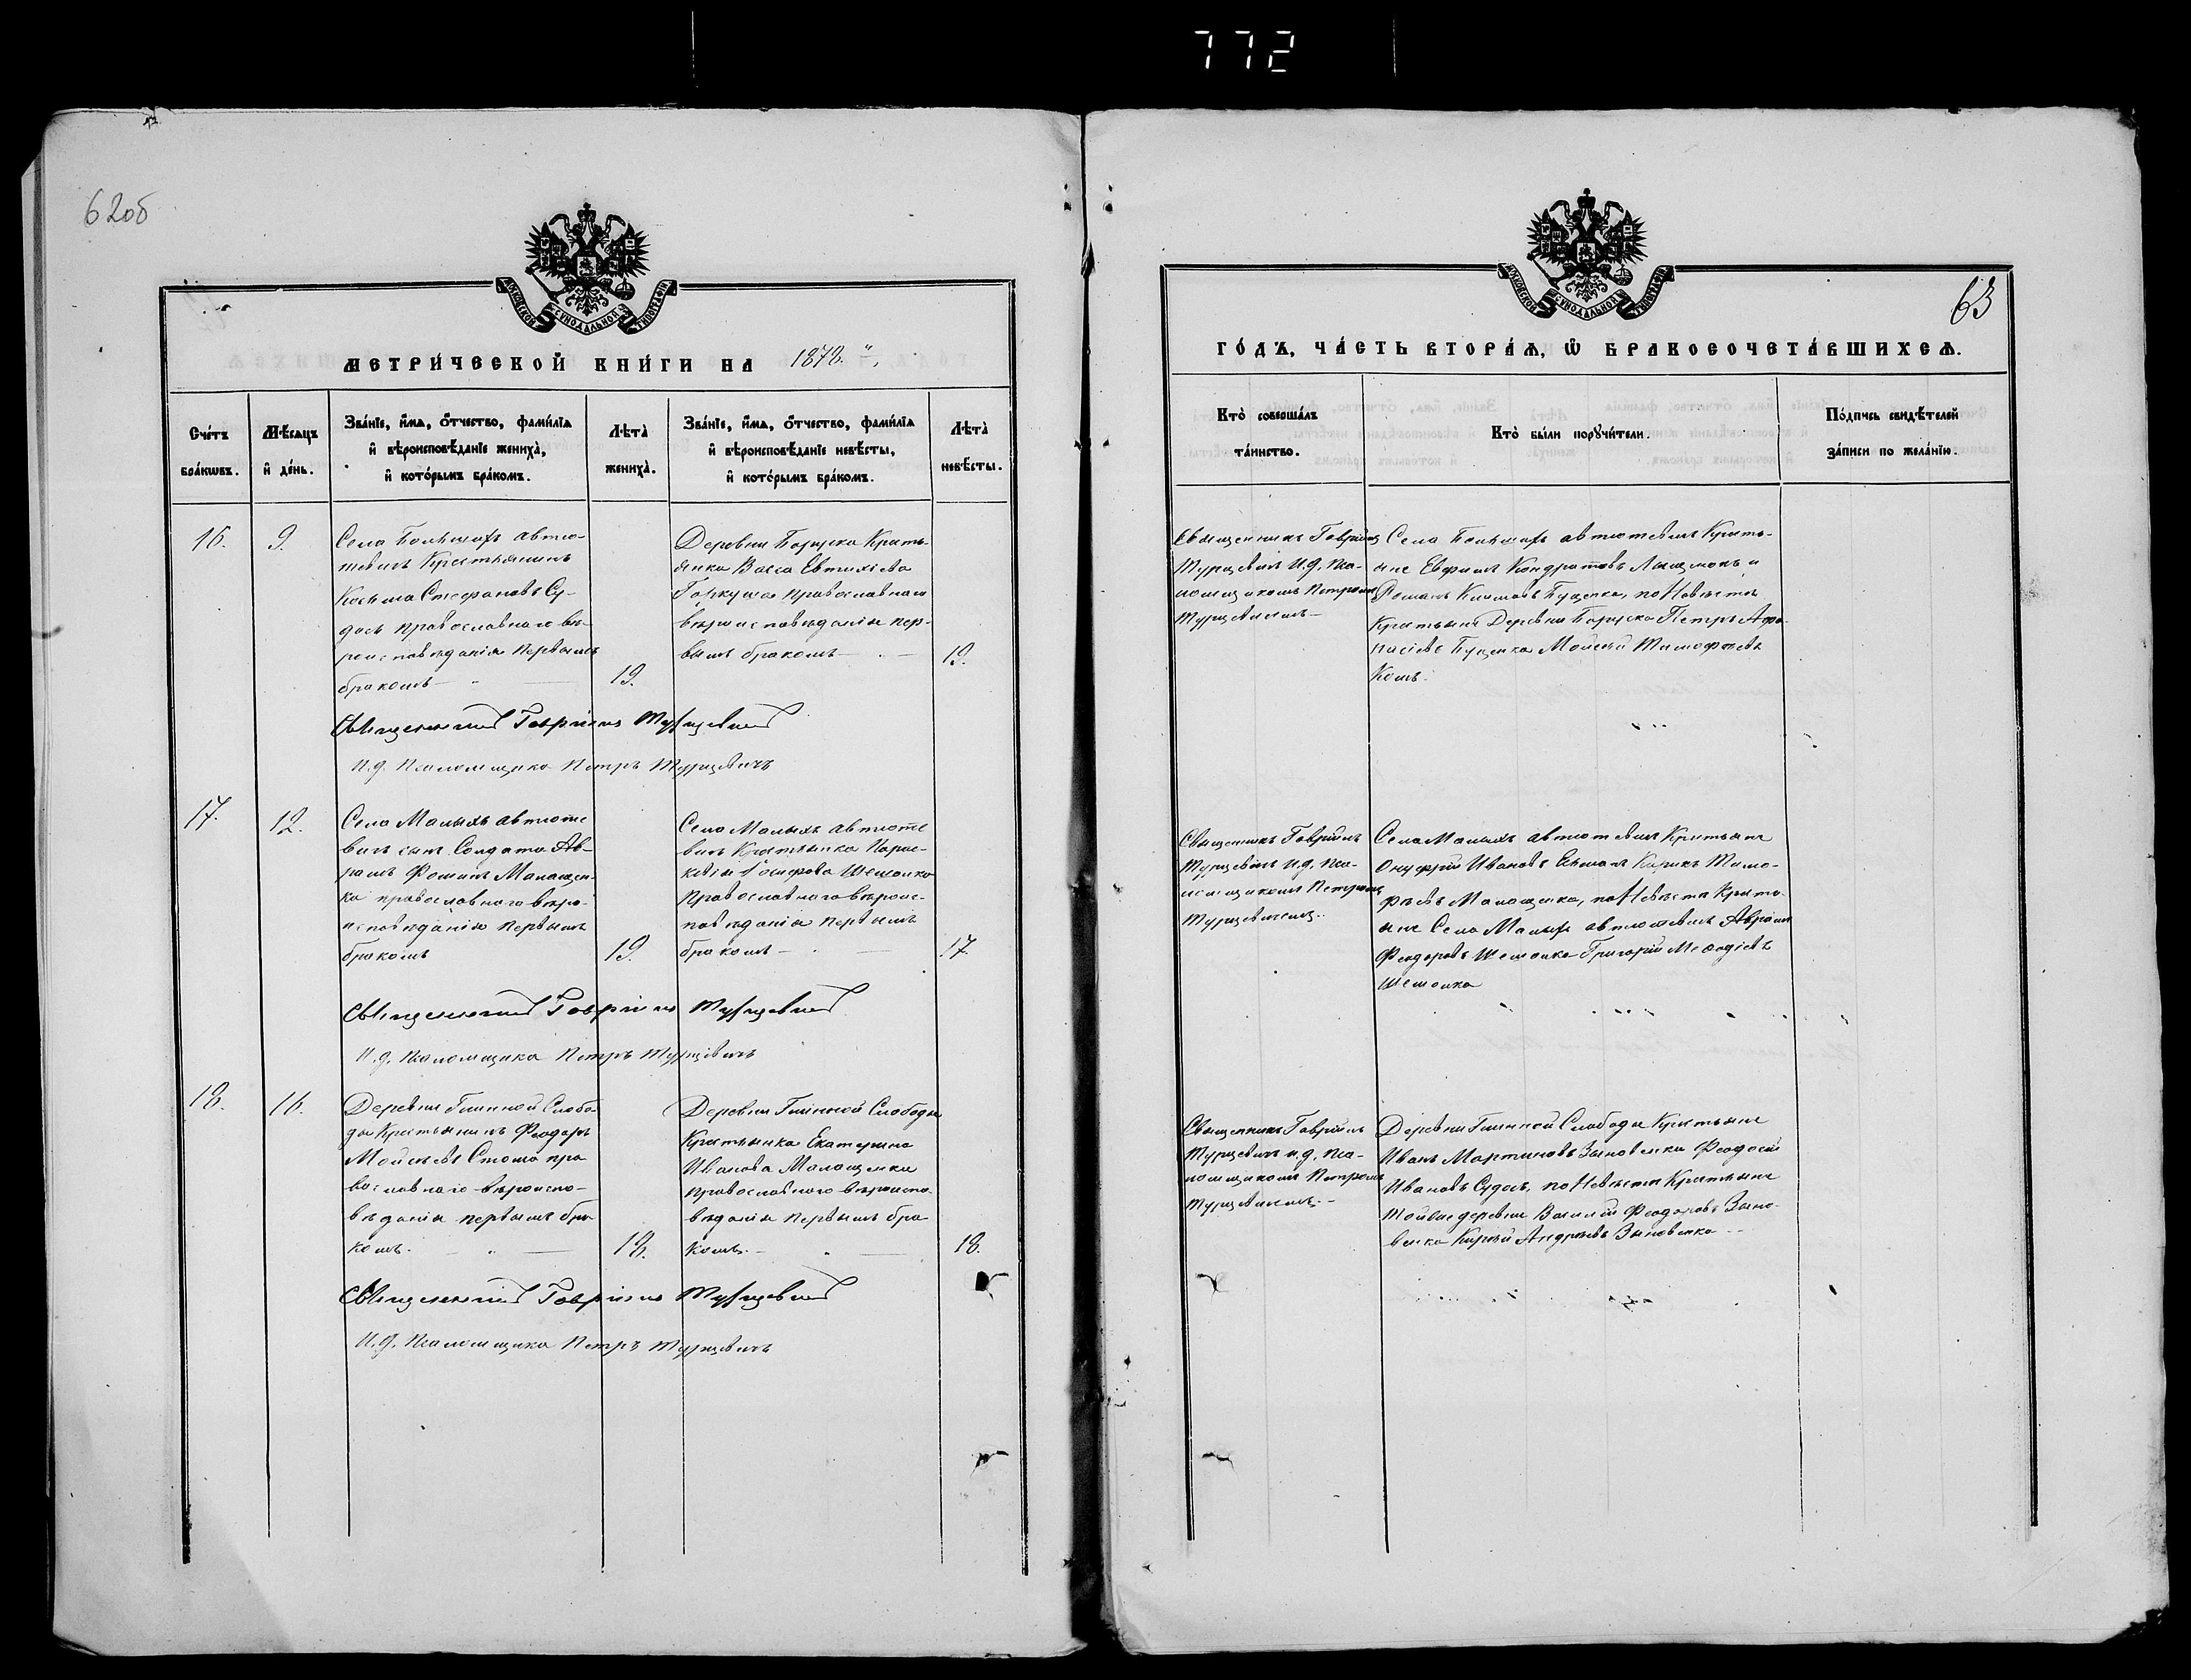 772
62об
МОСКОВСКОЙ СѴНОДАЛЬНОЙ ТИПОГРАФІИ
МЕТРИ́ЧЕСКОЙ КНИ́ГИ НА 1878.
Сче́тъ бра́кωвъ.
Мѣ́сяцъ и҆ де́нь.
Зва́нїе, и҆́мѧ, ѻ҆́тчество, фами́лїѧ
и҆ вѣроисповѣ́данїе жениха̀,
и҆ кото́рымъ бра́комъ.
Лѣта̀ жениха̀.
Зва́нїе, и҆́мѧ, ѻ҆́тчество, фами́лїѧ
и҆ вѣроисповѣ́данїе невѣ́сты,
и҆ кото́рымъ бра́комъ.
Лѣта̀ невѣ́сты.
16.
9.
Села Большихъ автю-
тевичъ Крестьянинъ
Косьма Стефановъ Су-
дасъ православнаго вѣ-
роисповѣданія первымъ
бракомъ
19.
Деревни Боруска Кресть-
янка Васса Евтихіева
Гаркуша православнаго
вѣроисповѣданія пер-
вымъ бракомъ
19.
Священникъ Гавріилъ Турцевичъ
И.д. Псаломщика Петръ Турцевичъ
17.
12.
Села Малыхъ автюте
вичъ сынъ Солдата Ав-
рамъ Фоминъ Малащен-
ко православнаго вѣро-
исповѣданія первымъ
бракомъ
19.
Села Малыхъ автюте
вичъ Крестьянка Парас-
кевія Іосифова Шешолко
православнаго вѣроис-
повѣданія первымъ
бракомъ
17.
Священникъ Гавріилъ Турцевичъ
И.д. Псаломщика Петръ Турцевичъ
18.
16.
Деревни Глинной Слобо-
ды Крестьянинъ Феодоръ
Мойсеевъ Стома пра
вославнаго вѣроиспо-
вѣданія первымъ бра
комъ.
18.
Деревни Глинной Слободы
Крестьянка Екатерина
Иванова Малащенко
православнаго вѣроиспо-
вѣданія первымъ бра
комъ.
18.
Священникъ Гавріилъ Турцевичъ
И.д. Псаломщика Петръ Турцевичъ
МОСКОВСКОЙ СѴНОДАЛЬНОЙ ТИПОГРАФІИ
63
ГО́ДЪ, ЧА́СТЬ ВТОРА́Ѧ, Ѡ҆ БРАКОСОЧЕТА́ВШИХСѦ.
Кто̀ соверша́лъ
та́инство.
Кто̀ бы́ли порꙋчи́тели.
По́дпись свидѣ́телей
за́писи по жела́нїю.
Священникъ Гавріилъ
Турцевичъ и.д. Пса-
ломщикомъ Петромъ
Турцевичемъ
Села Большихъ автютевичъ Кресть-
яне Евфимъ Кондратовъ и
Романъ Климовъ Буценко, по Невѣстѣ
Крестьяне Деревни Боруска Петръ Афа-
насіевъ Буценко Мойсей Тимофеевъ
Комъ.
Священникъ Гавріилъ
Турцевичъ и.д. Пса-
ломщикомъ Петромъ
Турцевичемъ
Села Малыхъ автютевичъ Крестьяне
Онуфрій Ивановъ Кирикъ Тимо-
феевъ Малощенко, по Невѣстѣ Кресть
яне Села Малыхъ автютевичъ Аврамъ
Феодоровъ Шешолко Григорій Меѳодіевъ
Шешолко
Священникъ Гавріилъ
Турцевичъ и.д. Пса-
ломщикомъ Петромъ
Турцевичемъ
Деревни Глинной Слободы Крестьяне
Иванъ Мартиновъ Зыновенко Феодосій
Ивановъ Судасъ, по Невѣстѣ Крестьяне
Той же деревни Василій Феодоровъ Зыно-
венко Кирей Андреевъ Зыновенко